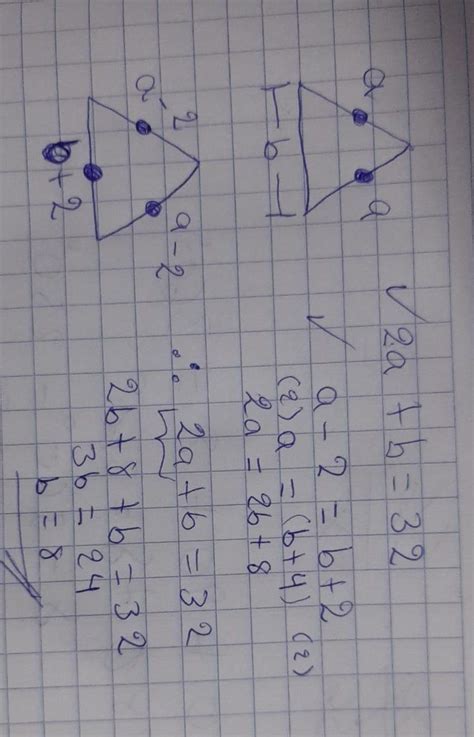 ✓ 2a + b = 32
a a
⊢ b ⊣
✓ a - 2 = b + 2
(2) a = (b+4) (2)
2a = 2b + 8
a - 2 a - 2
b + 2
∴ 2a + b = 32
2b + 8 + b = 32
3b = 24
b = 8